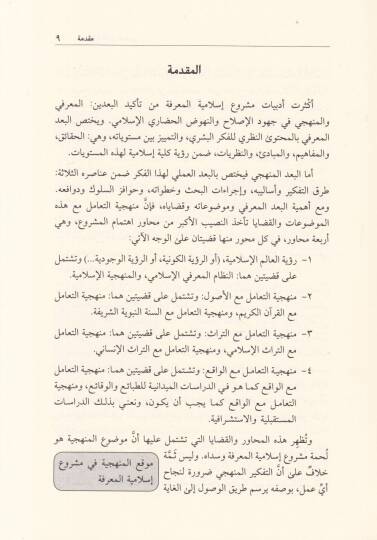 مقدمة ٩
المقدمة
أكْثرت أدبيات مشروع إسلامية المعرفة من تأكيد البعدين: المعرفي
والمنهجي في جهود الإصلاح والنهوض الحضاري الإسلامي. ويختص البعد
المعرفي بالمحتوى النظري للفكر البشري، والتمييز بين مستوياته، وهي: الحقائق،
والمفاهيم، والمبادئ، والنظريات، ضمن رؤية كلية إسلامية لهذه المستويات.
أما البعد المنهجي فيختص بالبعد العملي لهذا الفكر ضمن عناصره الثلاثة:
طرق التفكير وأساليبه، وإجراءات البحث وخطواته، وحوافز السلوك ودوافعه.
ومع أهمية البعد المعرفي وموضوعاته وقضاياه، فإنَّ منهجية التعامل مع هذه
الموضوعات والقضايا تأخذ النصيب الأكبر من محاور اهتمام المشروع، وهي
أربعة محاور، في كل محور منها قضيتان على الوجه الآتي:
١- رؤية العالم الإسلامية، (أو الرؤية الكونية، أو الرؤية الوجودية...) وتشتمل
على قضيتين هما: النظام المعرفي الإسلامي، والمنهجية الإسلامية.
٢- منهجية التعامل مع الأصول: وتشتمل على قضيتين هما: منهجية التعامل
مع القرآن الكريم، ومنهجية التعامل مع السنة النبوية الشريفة.
٣- منهجية التعامل مع التراث: وتشتمل على قضيتين هما: منهجية التعامل
مع التراث الإسلامي، ومنهجية التعامل مع التراث الإنساني.
٤- منهجية التعامل مع الواقع: وتشتمل على قضيتين هما: منهجية التعامل
مع الواقع كما هو في الدراسات الميدانية للطبائع والوقائع، ومنهجية
التعامل مع الواقع كما يجب أن يكون، ونعني بذلك الدراسات
المستقبلية والاستشرافية.
وتُظهر هذه المحاور والقضايا التي تشتمل عليها أنَّ موضوع المنهجية هو
لُحمة مشروع إسلامية المعرفة وسداه. وليس ثَمَّة
خلافٌ على أنَّ التفكير المنهجي ضرورة لنجاح
أيِّ عمل، بوصفه يرسم طريق الوصول إلى الغاية
موقع المنهجية في مشروع
إسلامية المعرفة